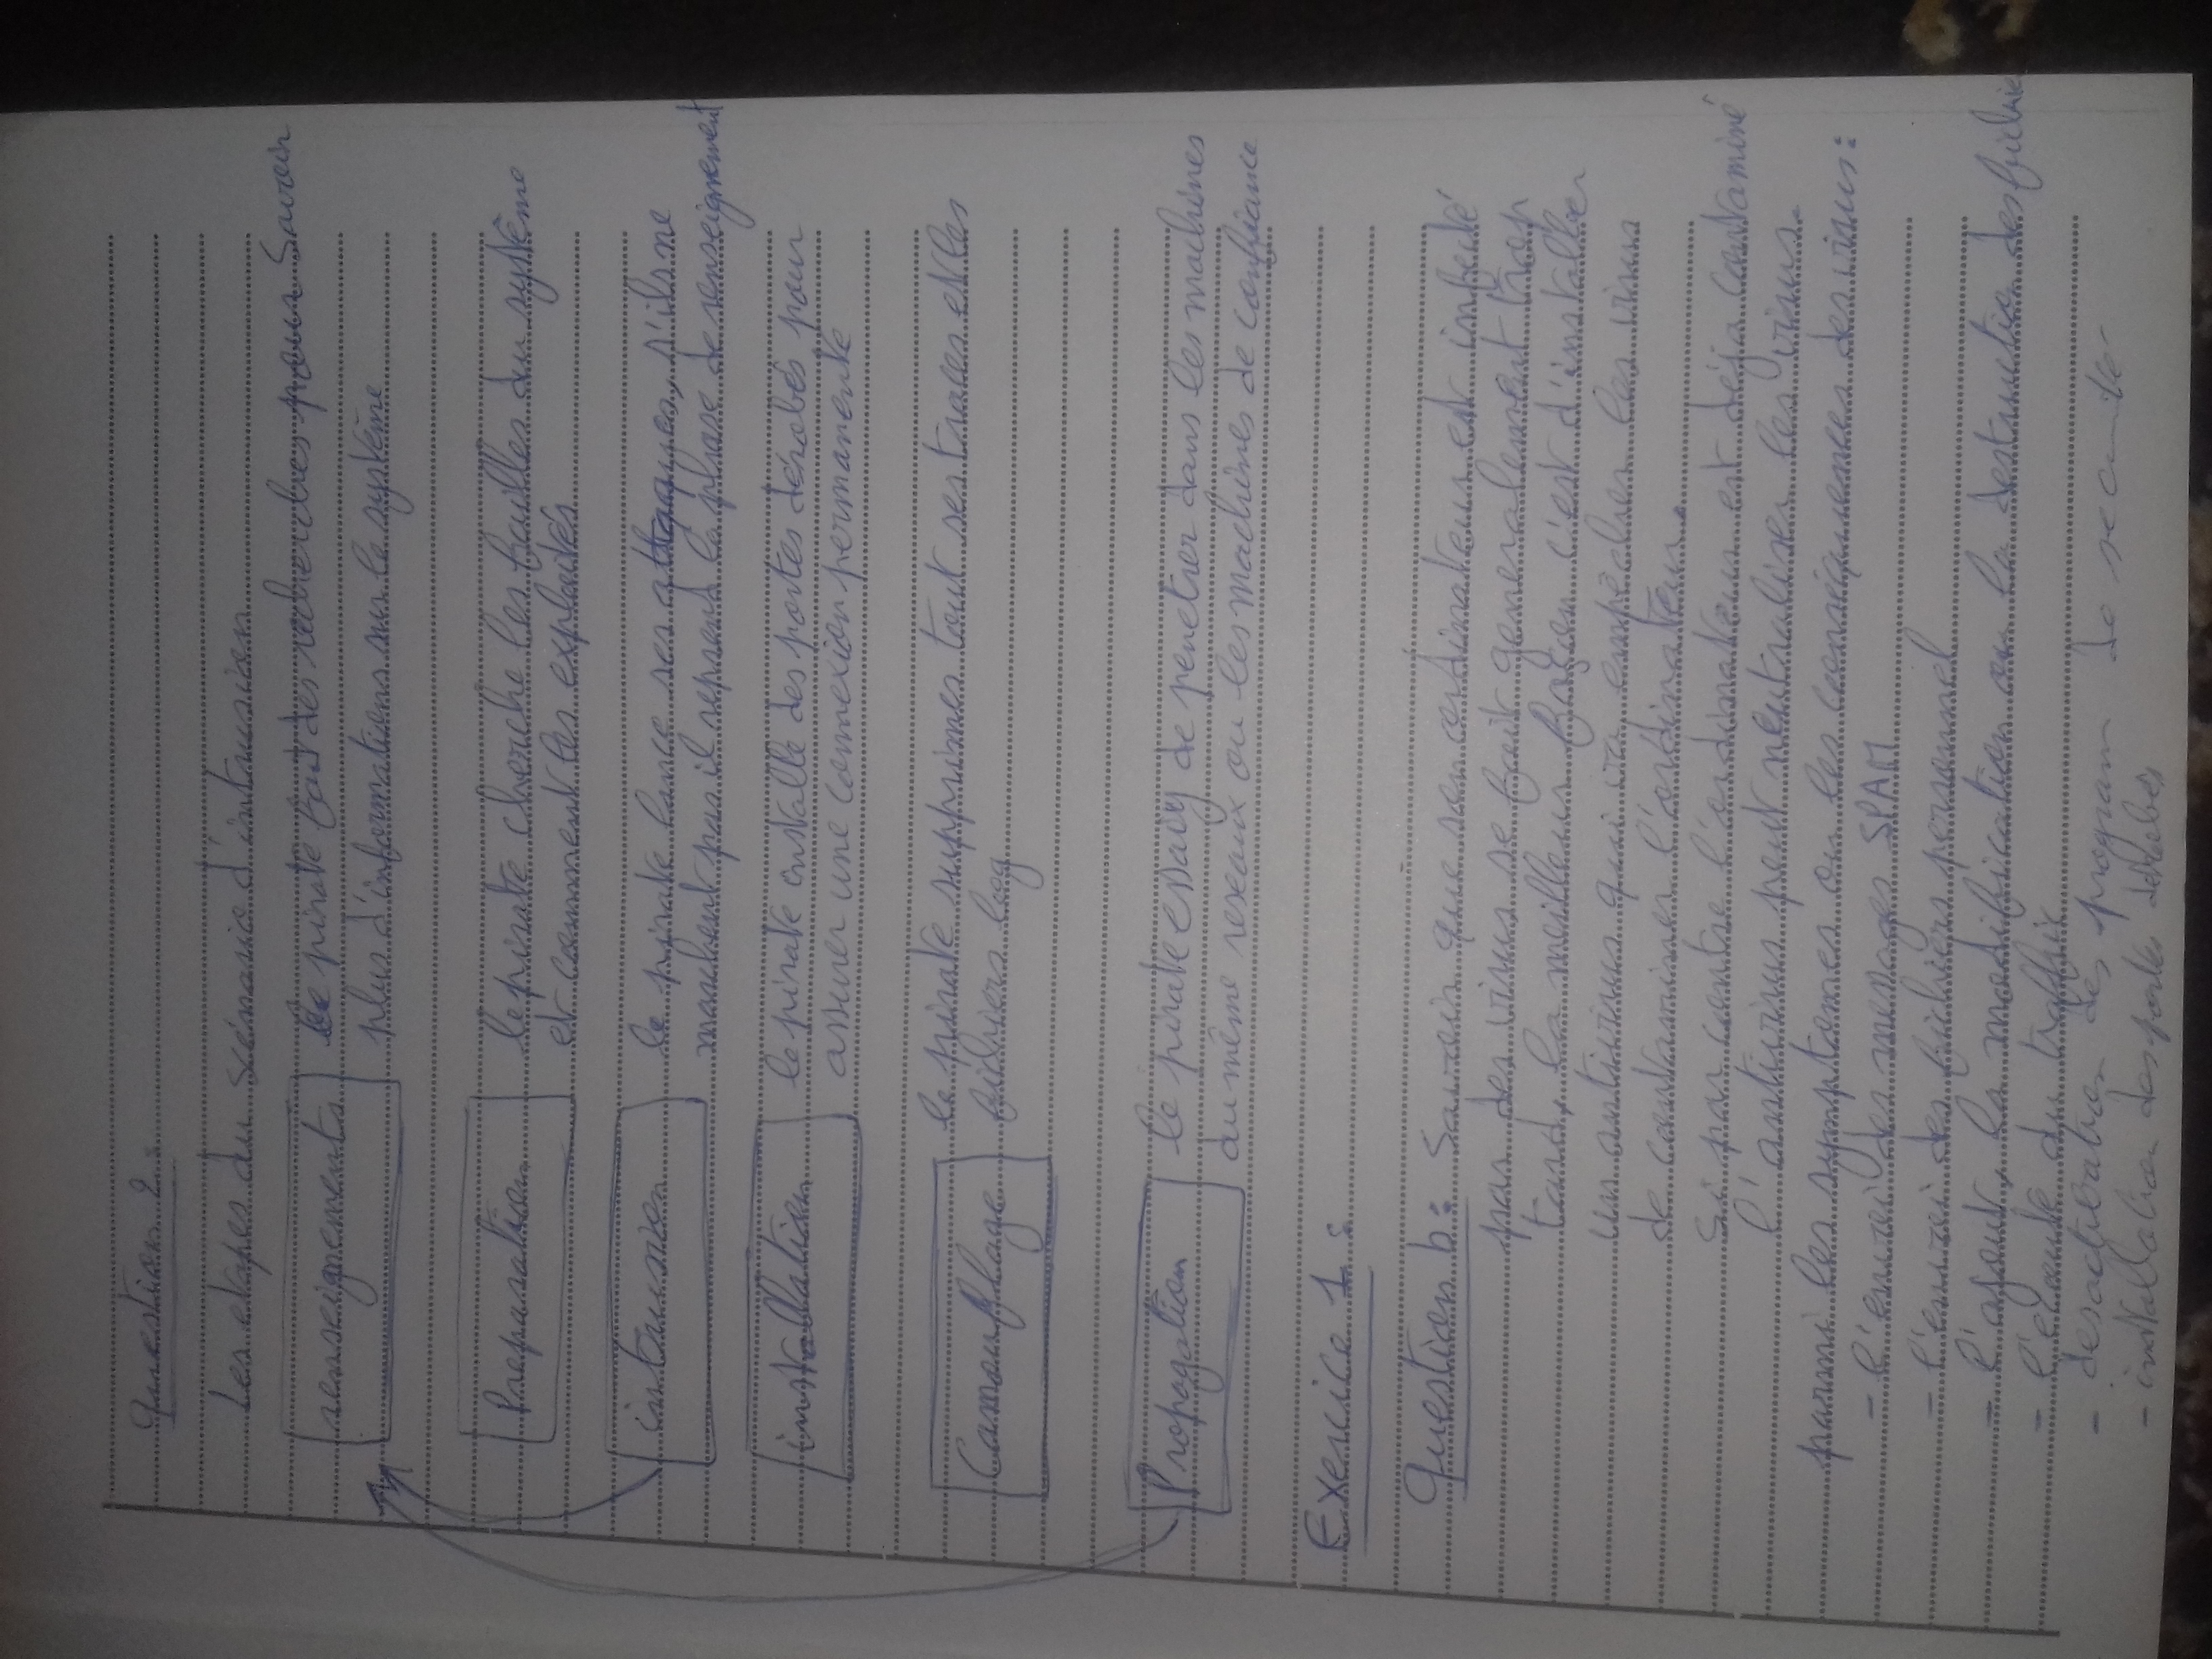 Question 2 :
Les etapes du scénario d'intrusion
renseignements le pirate fait des recherches pour savoir
plus d'informations sur le système
Preparation le pirate cherche les failles du système
et comment les exploités
intrusion le pirate lance ses attaques, s'ils ne
marchent pas il reprend la phase de renseignement
installation le pirate installe des portes dérobés pour
assurer une connexion permanente
Camouflage le pirate supprimes tout ses traces et les
fichiers log
Propagation le pirate essaiy de penetrer dans les machines
du même reseaux ou les machines de confiance
Exercice 1 :
Question b : Savoir que son ordinateur est infecté
par des virus se fait generalement trop
tard, la meilleur façon c'est d'installer
un antivirus qui va empêcher les virus
de contaminer l'ordinateur.
Si par contre l'ordinateur est déja contaminé
l'antivirus peut neutraliser les virus.
parmi les symptomes ou les conséquences des virus :
- l'envoi des messages SPAM
- l'envoi des fichiers personnel
- l'ajout, la modification ou la destruction des fichie
- l'écoute du traffic
- desactivation des program de securité
- installation des portes dérobés